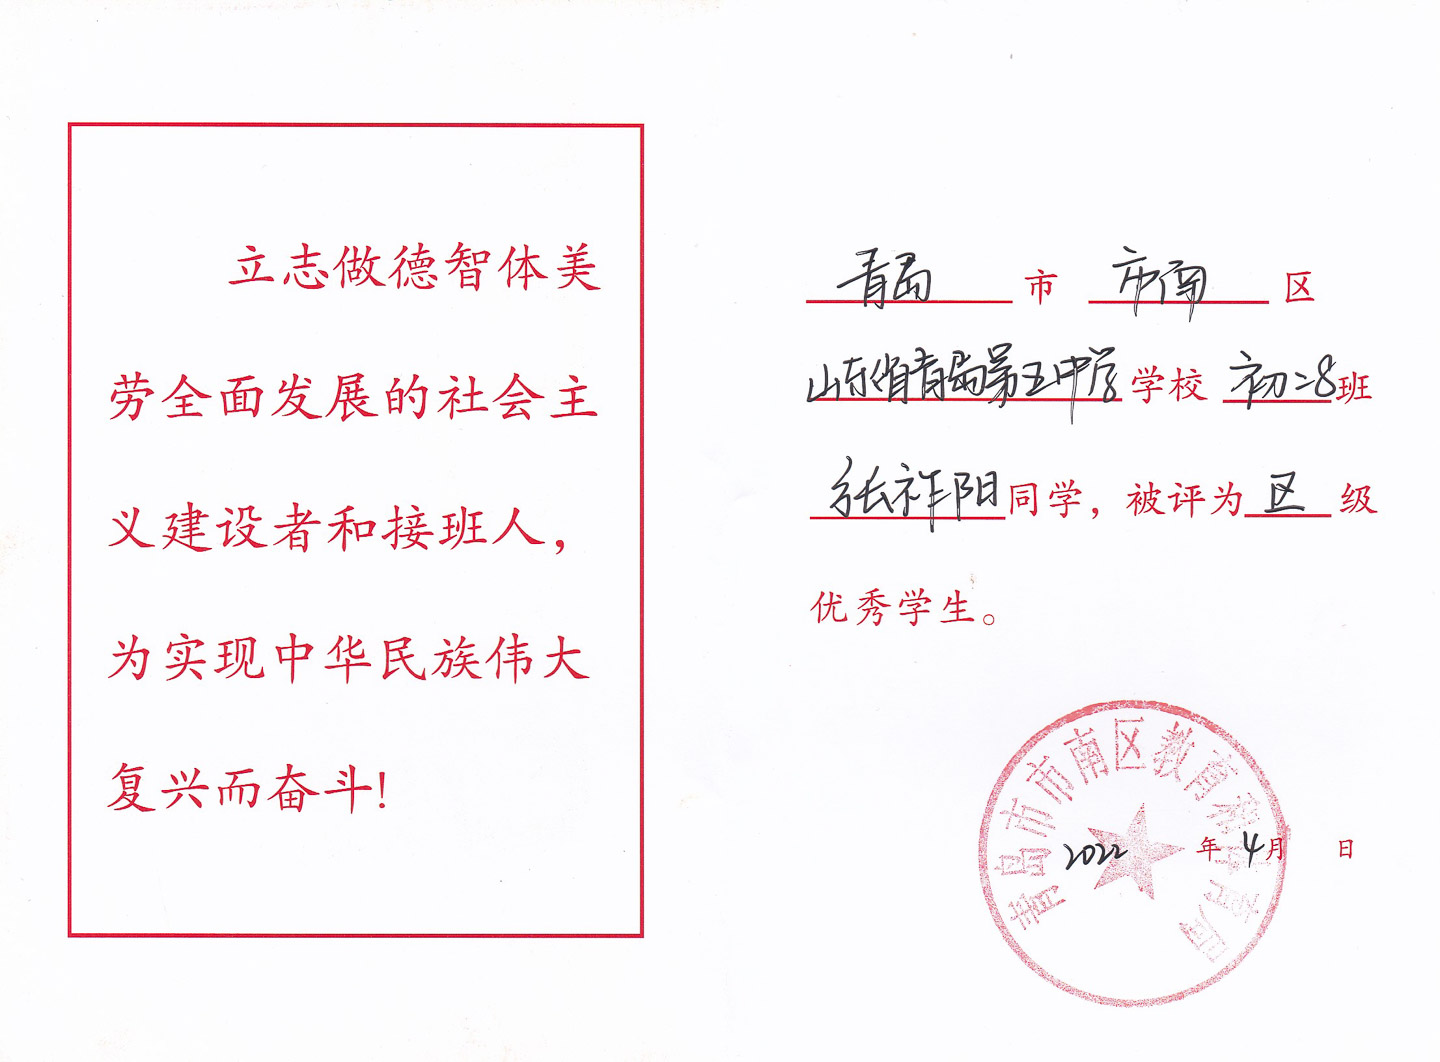 立志做德智体美
劳全面发展的社会主
义建设者和接班人，
为实现中华民族伟大
复兴而奋斗!
青岛 市 市南 区
山东省青岛第五中学 学校 初二8班
张祚阳同学，被评为 区 级
优秀学生。
青岛市市南区教育和体育局
2022 年 4月 日